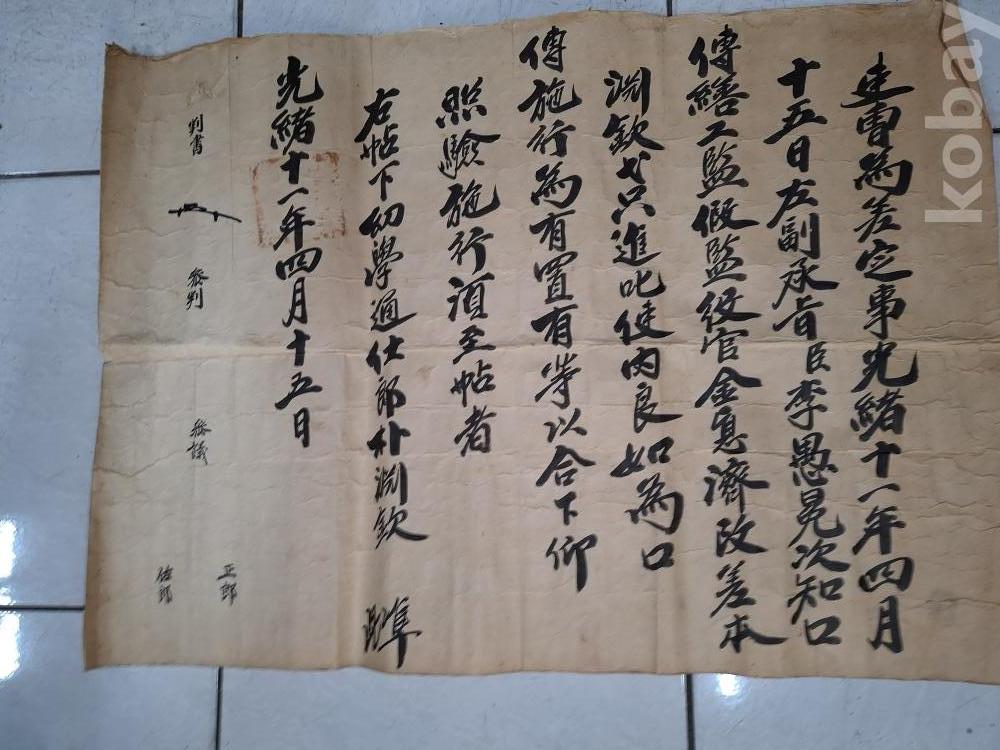 曹為差定事光緒十一年四月
十五日左副承旨臣李愚晃次知口
傳繕工監假監役官金寬濟改差本
淵欽弋只進叱使內良如為口
傳施行為有置有等以合下仰
照驗施行須至帖者
右帖下幼學通仕郎朴淵欽 準
光緒十一年四月十五日
判書
參判
參議
正郎
佐郎
kobay